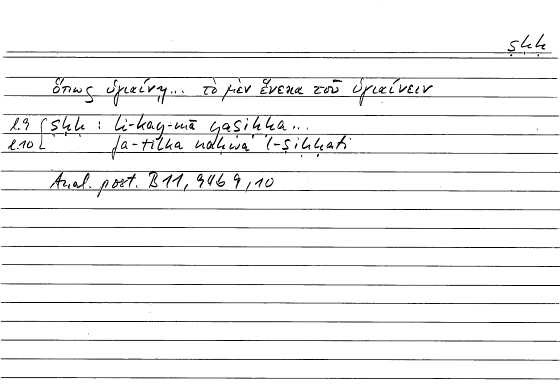 ṣḥḥ
ὅπως ὑγιαίνῃ... τὸ μὲν ἕνεκα τοῦ ὑγιαίνειν
l.9 ṣḥḥ : li-kay-mā yaṣiḥḥa...
l.10 fa-tilka naḥwa ’l-ṣiḥḥati
Anal. post. B 11, 94b 9, 10